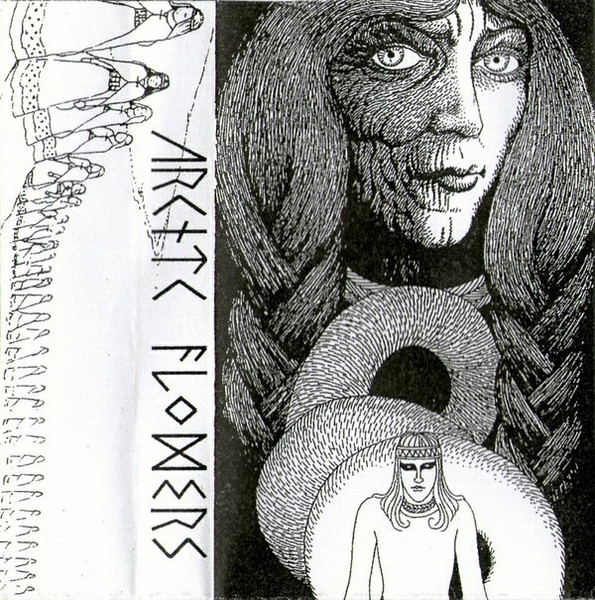 ARCTIC FLOWERS